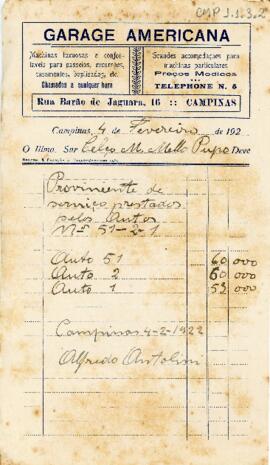 CMP 1.1.3.2
GARAGE AMERICANA
Machinas luxuosas e confor-
taveis para passeios, excursões,
casamentos, baptisados, etc.
Chamados a qualquer hora
Grandes acomodações para
machinas particulares
Preços Modicos
TELEPHONE N. 5
Rua Barão de Jaguara, 16 :: CAMPINAS
Campinas, 4 de Fevereiro de 192
O Illmo. Snr Celso M. Mello Pupo Deve
Proviniente de
serviço prestados
pelos Autos
Nos 51-2-1
Auto 51 60 000
Auto 2 60 000
Auto 1 55 000
Campinas 4-2-1922
Alfredo Antolini